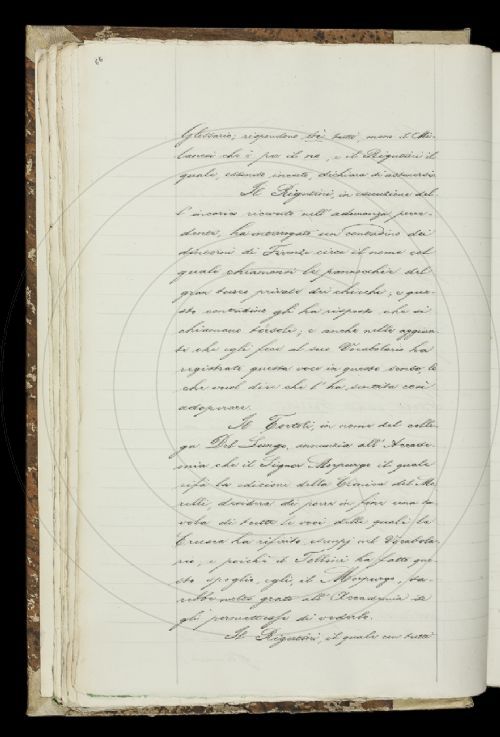 66
Glossario; rispondono, sì tutti, meno il Mi-
lanesi che è per il no, e il Rigutini il
quale, essendo incerto, dichiara di astenersi.
Il Rigutini, in esecuzione del-
l'incarico ricevuto nell'adunanza prece-
dente, ha interrogato un contadino dei
dintorni di Firenze circa il nome col
quale chiamansi le pannocchie del
gran turco private dei chicchi; e que-
sto contadino gli ha risposto che si
chiamano tórsoli; e anche nelle aggiun-
te che egli fece al suo Vocabolario ha
registrata questa voce in questo senso, il
che vuol dire che l'ha sentita così
adoperare.
Il Tortoli, in nome del colle-
ga Del Lungo, annunzia all'Accade-
mia che il Signor Morpurgo il quale
rifà la edizione della Cronica del Mo-
relli, desidera di porre in fine una ta-
vola di tutte le voci delle quali la
Crusca ha riferito esempj nel Vocabola-
rio; e poichè il Tobbini ha fatto que-
sto spoglio, egli, il Morpurgo, sa-
rebbe molto grato all'Accademia se
gli permettesse di vederlo.
Il Rigutini, il quale con tutti